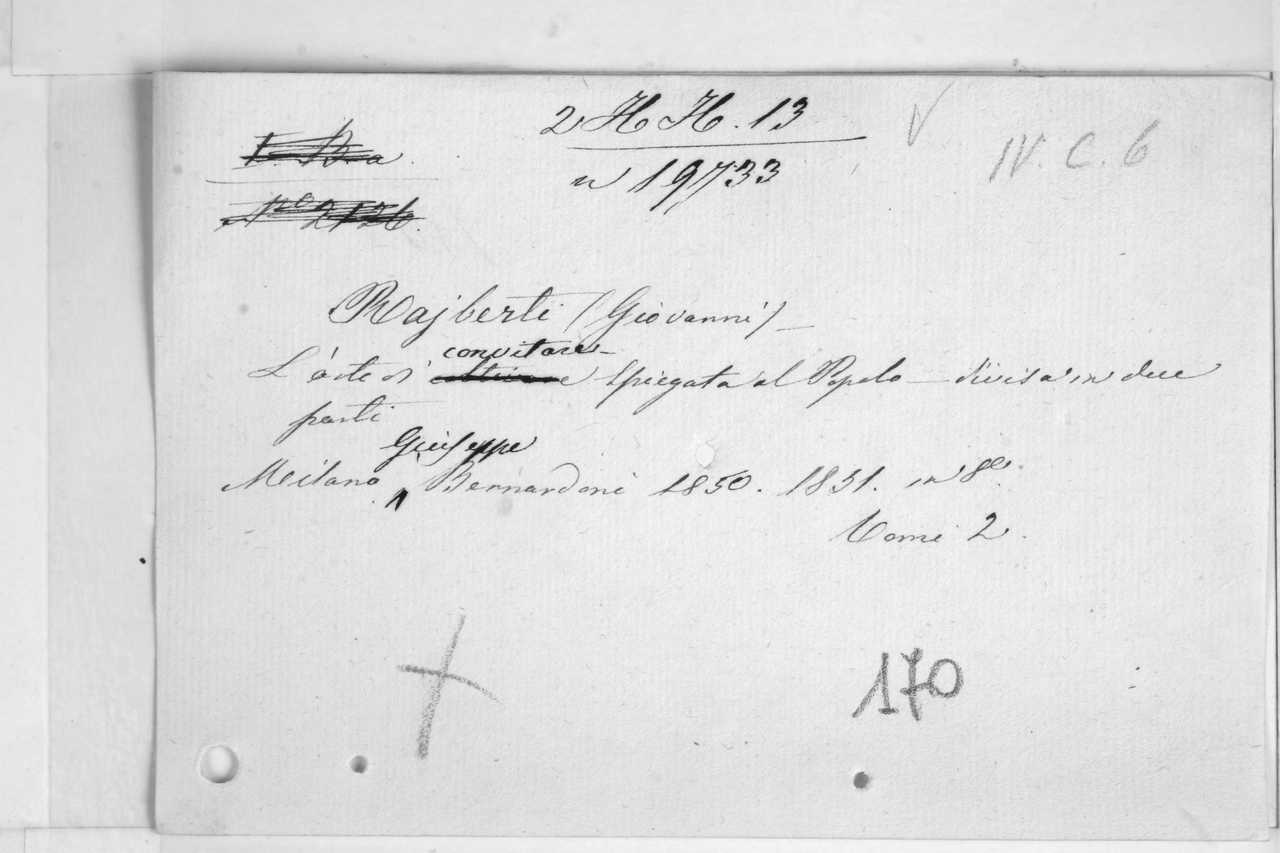 2 H H. 13
n 19733
V
IV. C. 6
No 2126.
Rajberti (Giovanni)
convitare
L'arte di spiegata al Popolo divisa in due
parti
Giuseppe
Milano Bernardoni 1850. 1851. in 8o.
Tomi 2.
170